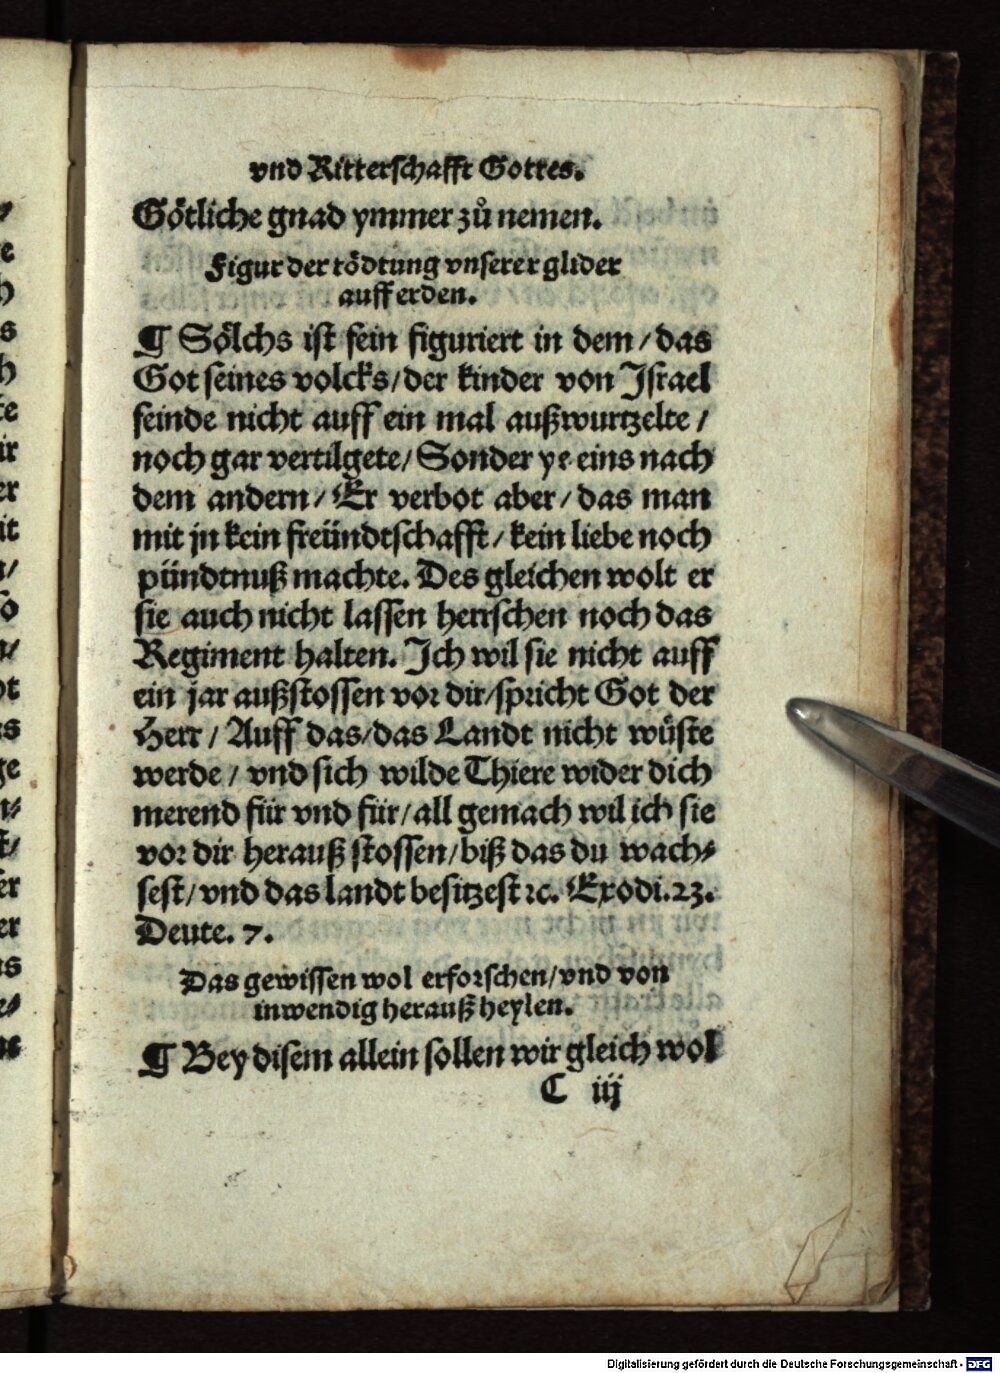 vnd Ritterschafft Gottes.
Götliche gnad ymmer zů nemen.
Figur der tödtung vnserer glider
auff erden.
¶ Sölchs ist fein figuriert in dem / das
Got seines volcks / der kinder von Israel
feinde nicht auff ein mal außwurtzelte /
noch gar vertilgete / Sonder ye eins nach
dem andern / Er verbot aber / das man
mit jn kein freündtschafft / kein liebe noch
pündtnuß machte. Des gleichen wolt er
sie auch nicht lassen herrschen noch das
Regiment halten. Ich wil sie nicht auff
ein jar außstossen vor dir / spricht Got der
Herr / Auff das / das Landt nicht wüste
werde / vnd sich wilde Thiere wider dich
merend für vnd für / all gemach wil ich sie
vor dir herauß stossen / biß das du wach⸗
sest / vnd das landt besitzest ꝛc. Exodi. 23.
Deute. 7.
Das gewissen wol erforschen / vnd von
inwendig herauß heylen.
¶ Bey disem allein sollen wir gleich wol
C iij
Digitalisierung gefördert durch die Deutsche Forschungsgemeinschaft - DFG